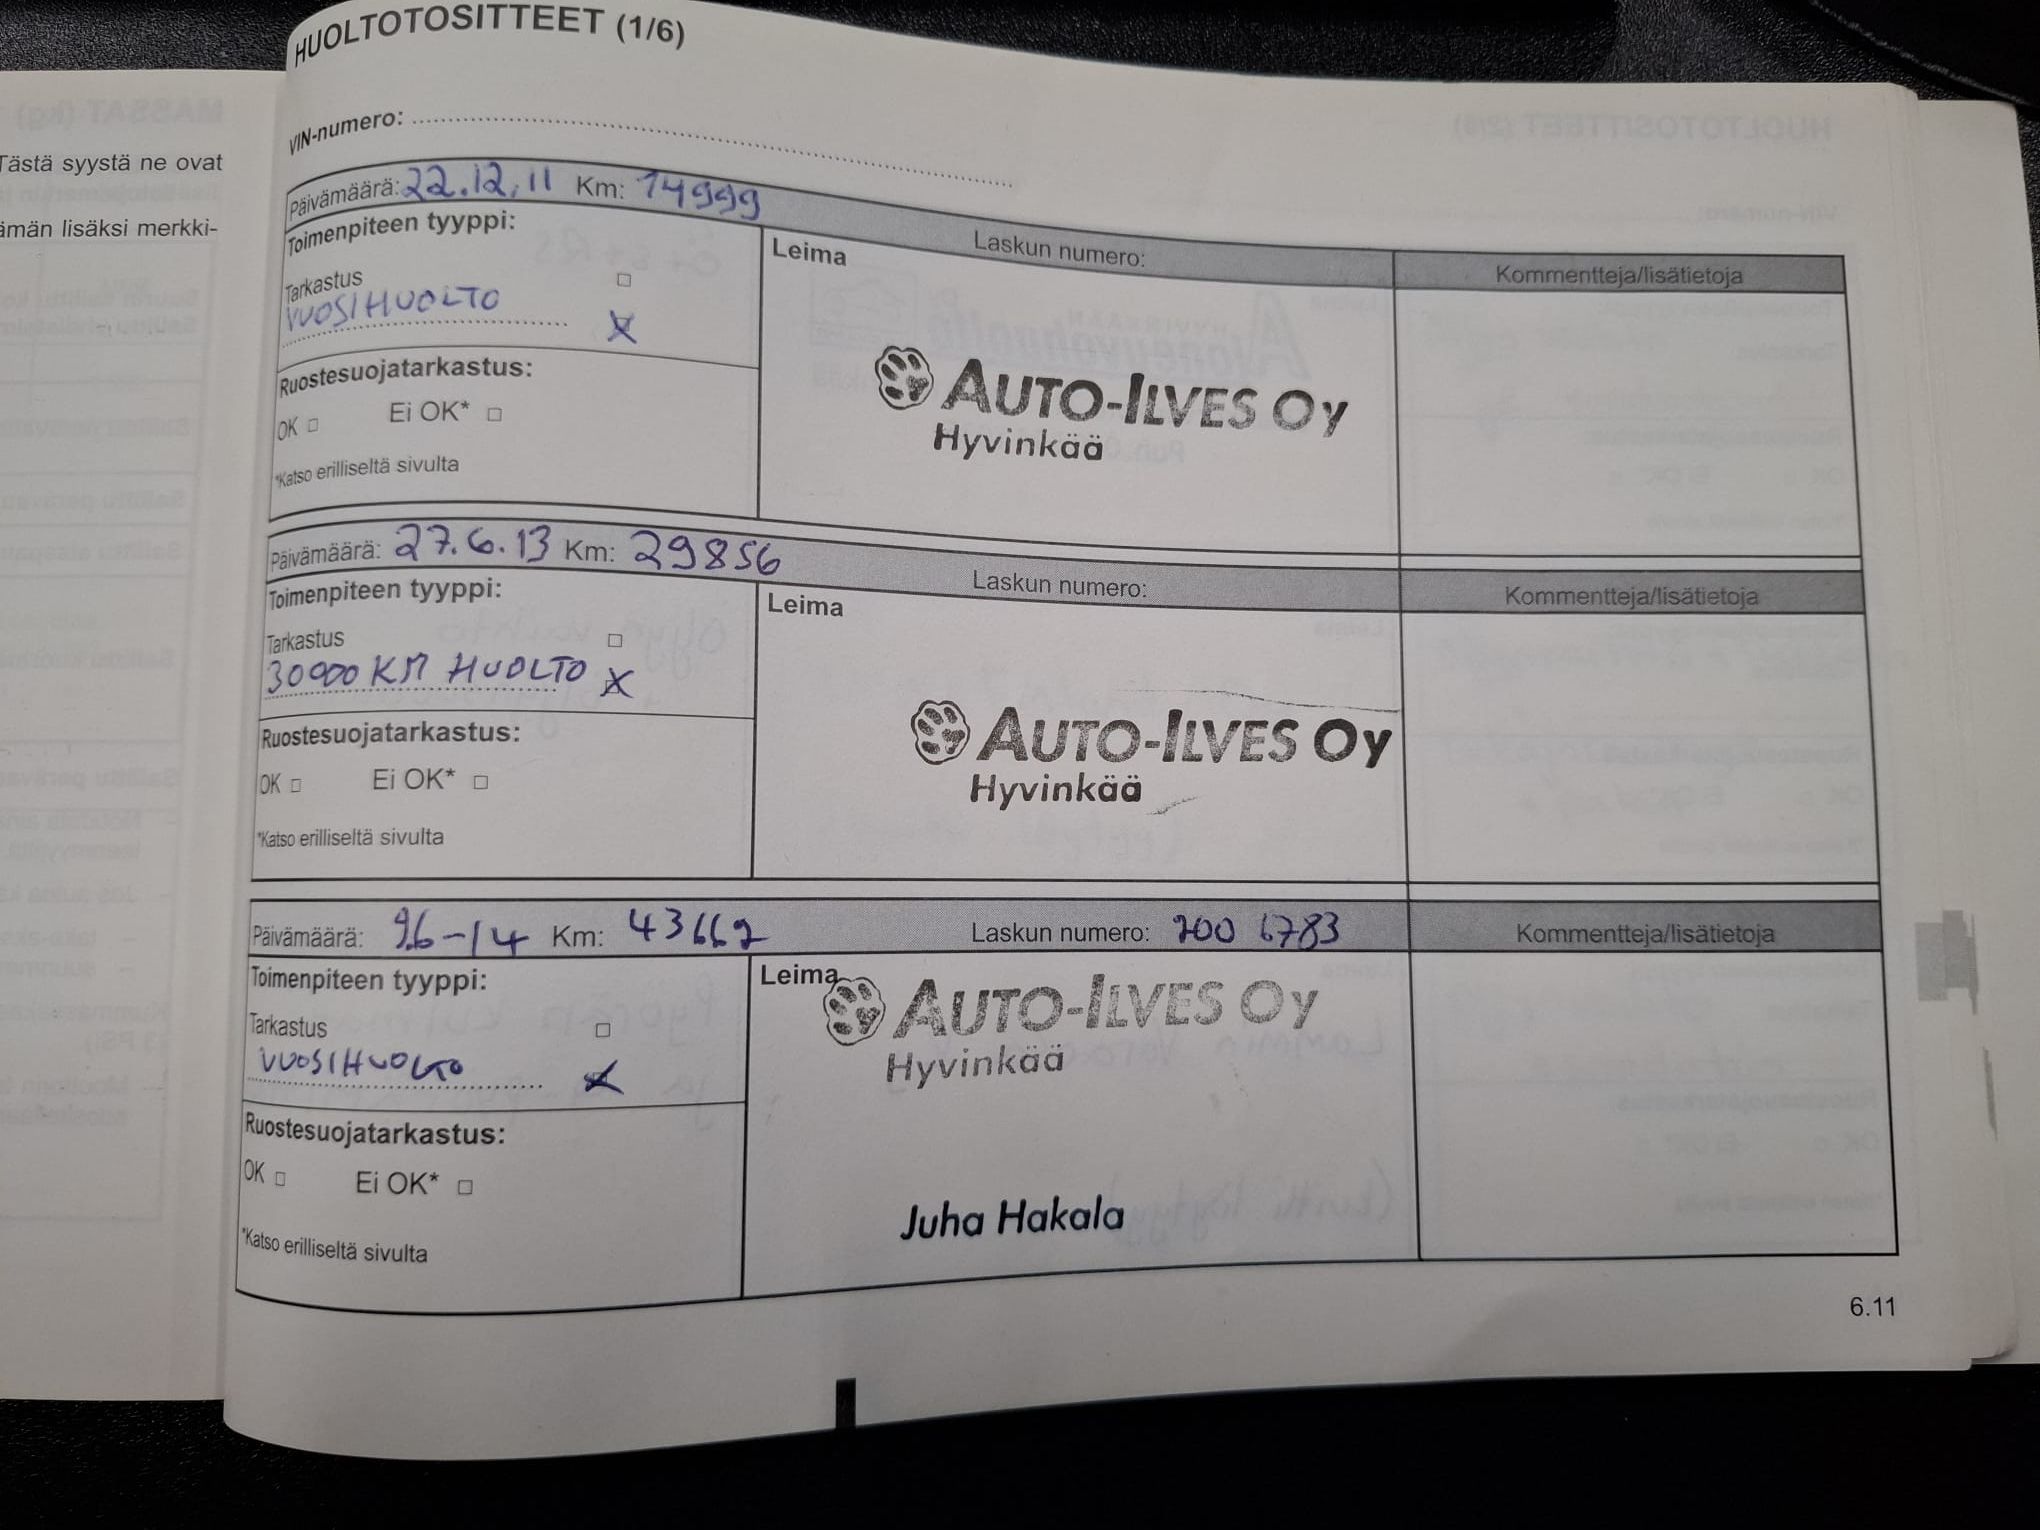 HUOLTOTOSITTEET (1/6)
VIN-numero:
Tästä syystä ne ovat
ämän lisäksi merkki-
Päivämäärä: 22.12.11 Km: 14999 Laskun numero: Kommentteja/lisätietoja
Toimenpiteen tyyppi:
Leima
Tarkastus
VUOSIHUOLTO
AUTO-ILVES Oy
Hyvinkää
Ruostesuojatarkastus:
OK Ei OK*
*Katso erilliseltä sivulta
Päivämäärä: 27.6.13 Km: 29856 Laskun numero: Kommentteja/lisätietoja
Toimenpiteen tyyppi:
Leima
Tarkastus
30000 KM HUOLTO
AUTO-ILVES Oy
Hyvinkää
Ruostesuojatarkastus:
OK Ei OK*
*Katso erilliseltä sivulta
Päivämäärä: 9.6-14 Km: 43662 Laskun numero: 200 6783 Kommentteja/lisätietoja
Toimenpiteen tyyppi:
Leima
AUTO-ILVES Oy
Hyvinkää
Tarkastus
VUOSIHUOLTO
Ruostesuojatarkastus:
OK Ei OK*
Juha Hakala
*Katso erilliseltä sivulta
6.11